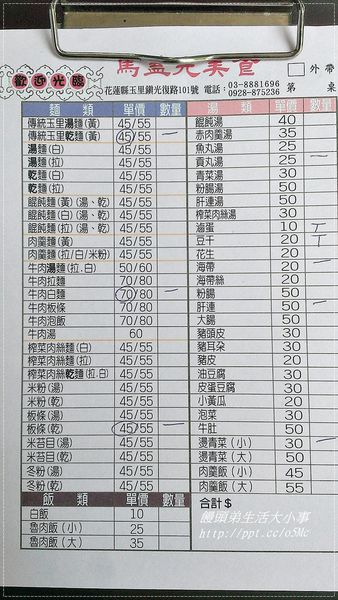 歡迎光臨
馬蓋先美食
外帶
花蓮縣玉里鎮光復路101號 電話：03-8881696
0928-875236
第 桌
麵 類 單價 數量
傳統玉里湯麵(黃) 45/55
傳統玉里乾麵(黃) 45/55 一
湯麵(白) 45/55
湯麵(拉) 45/55
乾麵(白) 45/55
乾麵(拉) 45/55
餛飩麵(黃)(湯、乾) 45/55
餛飩麵(白)(湯、乾) 45/55
餛飩麵(拉)(湯、乾) 45/55
肉羹麵(黃) 45/55
肉羹麵(拉/白/米粉) 45/55
牛肉湯麵(拉.白) 50/60
牛肉拉麵 70/80
牛肉白麵 70/80 一
牛肉板條 70/80
牛肉泡飯 70/80
牛肉湯 60
榨菜肉絲麵(白) 45/55
榨菜肉絲麵(拉) 45/55
榨菜肉絲乾麵(拉.白) 45/55
米粉(湯) 45/55
米粉(乾) 45/55
板條(湯) 45/55
板條(乾) 45/55 一
米苔目(湯) 45/55
米苔目(乾) 45/55
冬粉(湯) 45/55
冬粉(乾) 45/55
飯 類 單價 數量
白飯 10
魯肉飯(小) 25
魯肉飯(大) 35
湯 類 單價 數量
餛飩湯 40
赤肉羹湯 35
魚丸湯 25
貢丸湯 25 一
青菜湯 30
粉腸湯 50
肝連湯 50
榨菜肉絲湯 30
滷蛋 10 丅
豆干 20 丅
花生 20
海帶 20 一
海帶絲 20
粉腸 50 一
肝連 50 一
大腸 50
豬頭皮 30
豬耳朵 30
豬皮 20
油豆腐 30
皮蛋豆腐 30
小黃瓜 20
泡菜 30
牛肚 50
燙青菜(小) 30 一
燙青菜(大) 50
肉羹飯(小) 45
肉羹飯(大) 55
合計$
饅頭弟生活大小事
http://ppt.cc/o5Mc